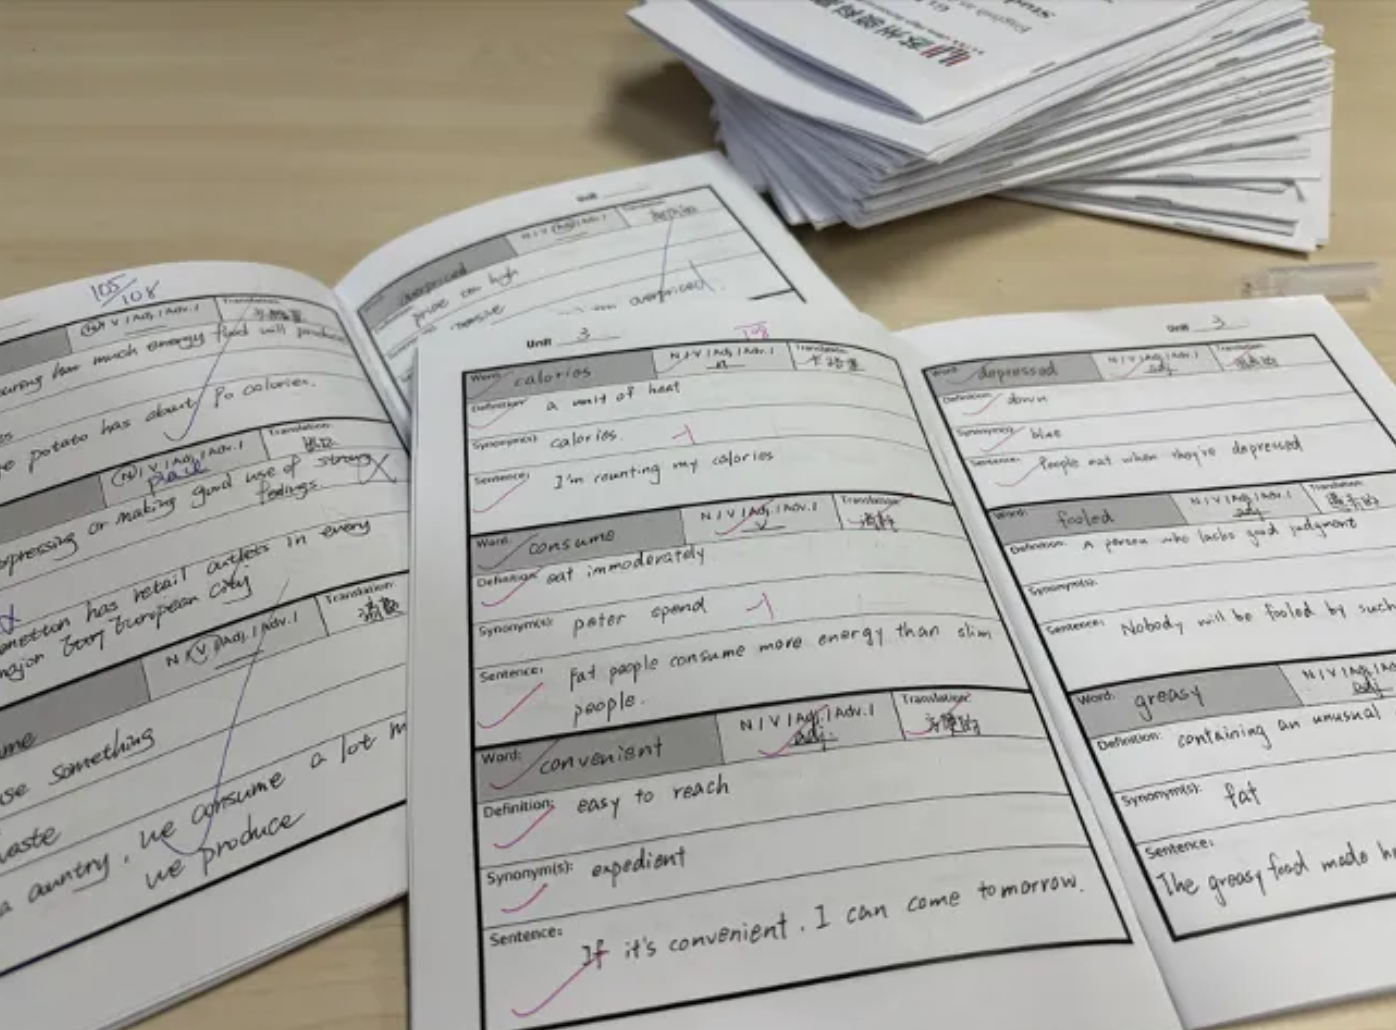 105/108
N / V / Adj. / Adv. /
Translation:
much energy food will produce
potato has about 80 calories.
N / V / Adj. / Adv. /
Translation:
place
or making good use of strong
feelings.
has retail outlets in every
major European city
N / V / Adj. / Adv. /
Translation:
消费
something
a country, we consume a lot
we produce
Unit
overpriced
N / V / Adj. / Adv. /
high
overpriced.
Unit 3
108
Word: calories
N / V / Adj. / Adv. /
n
Translation:
卡路里
Definition: a unit of heat
Synonym(s): calories. -1
Sentence: I'm counting my calories
Word: consume
N / V / Adj. / Adv. /
v
Translation:
消耗
Definition: eat immoderately
Synonym(s): peter spend -1
Sentence: Fat people consume more energy than slim
people.
Word: convenient
N / V / Adj. / Adv. /
adj.
Translation:
方便的
Definition: easy to reach
Synonym(s): expedient
Sentence:
If it's convenient. I can come tomorrow.
Unit 3
Word: depressed
N / V / Adj. / Adv. /
adj
Translation:
Definition: down
Synonym(s): blue
Sentence: People eat when they're depressed
Word: fooled
N / V / Adj. / Adv. /
adj
Translation:
Definition: A person who lacks good judgment
Synonym(s):
Sentence: Nobody will be fooled by such
Word: greasy
N / V / Adj.
adj
Definition: containing an unusual
Synonym(s): fat
Sentence:
The greasy food made